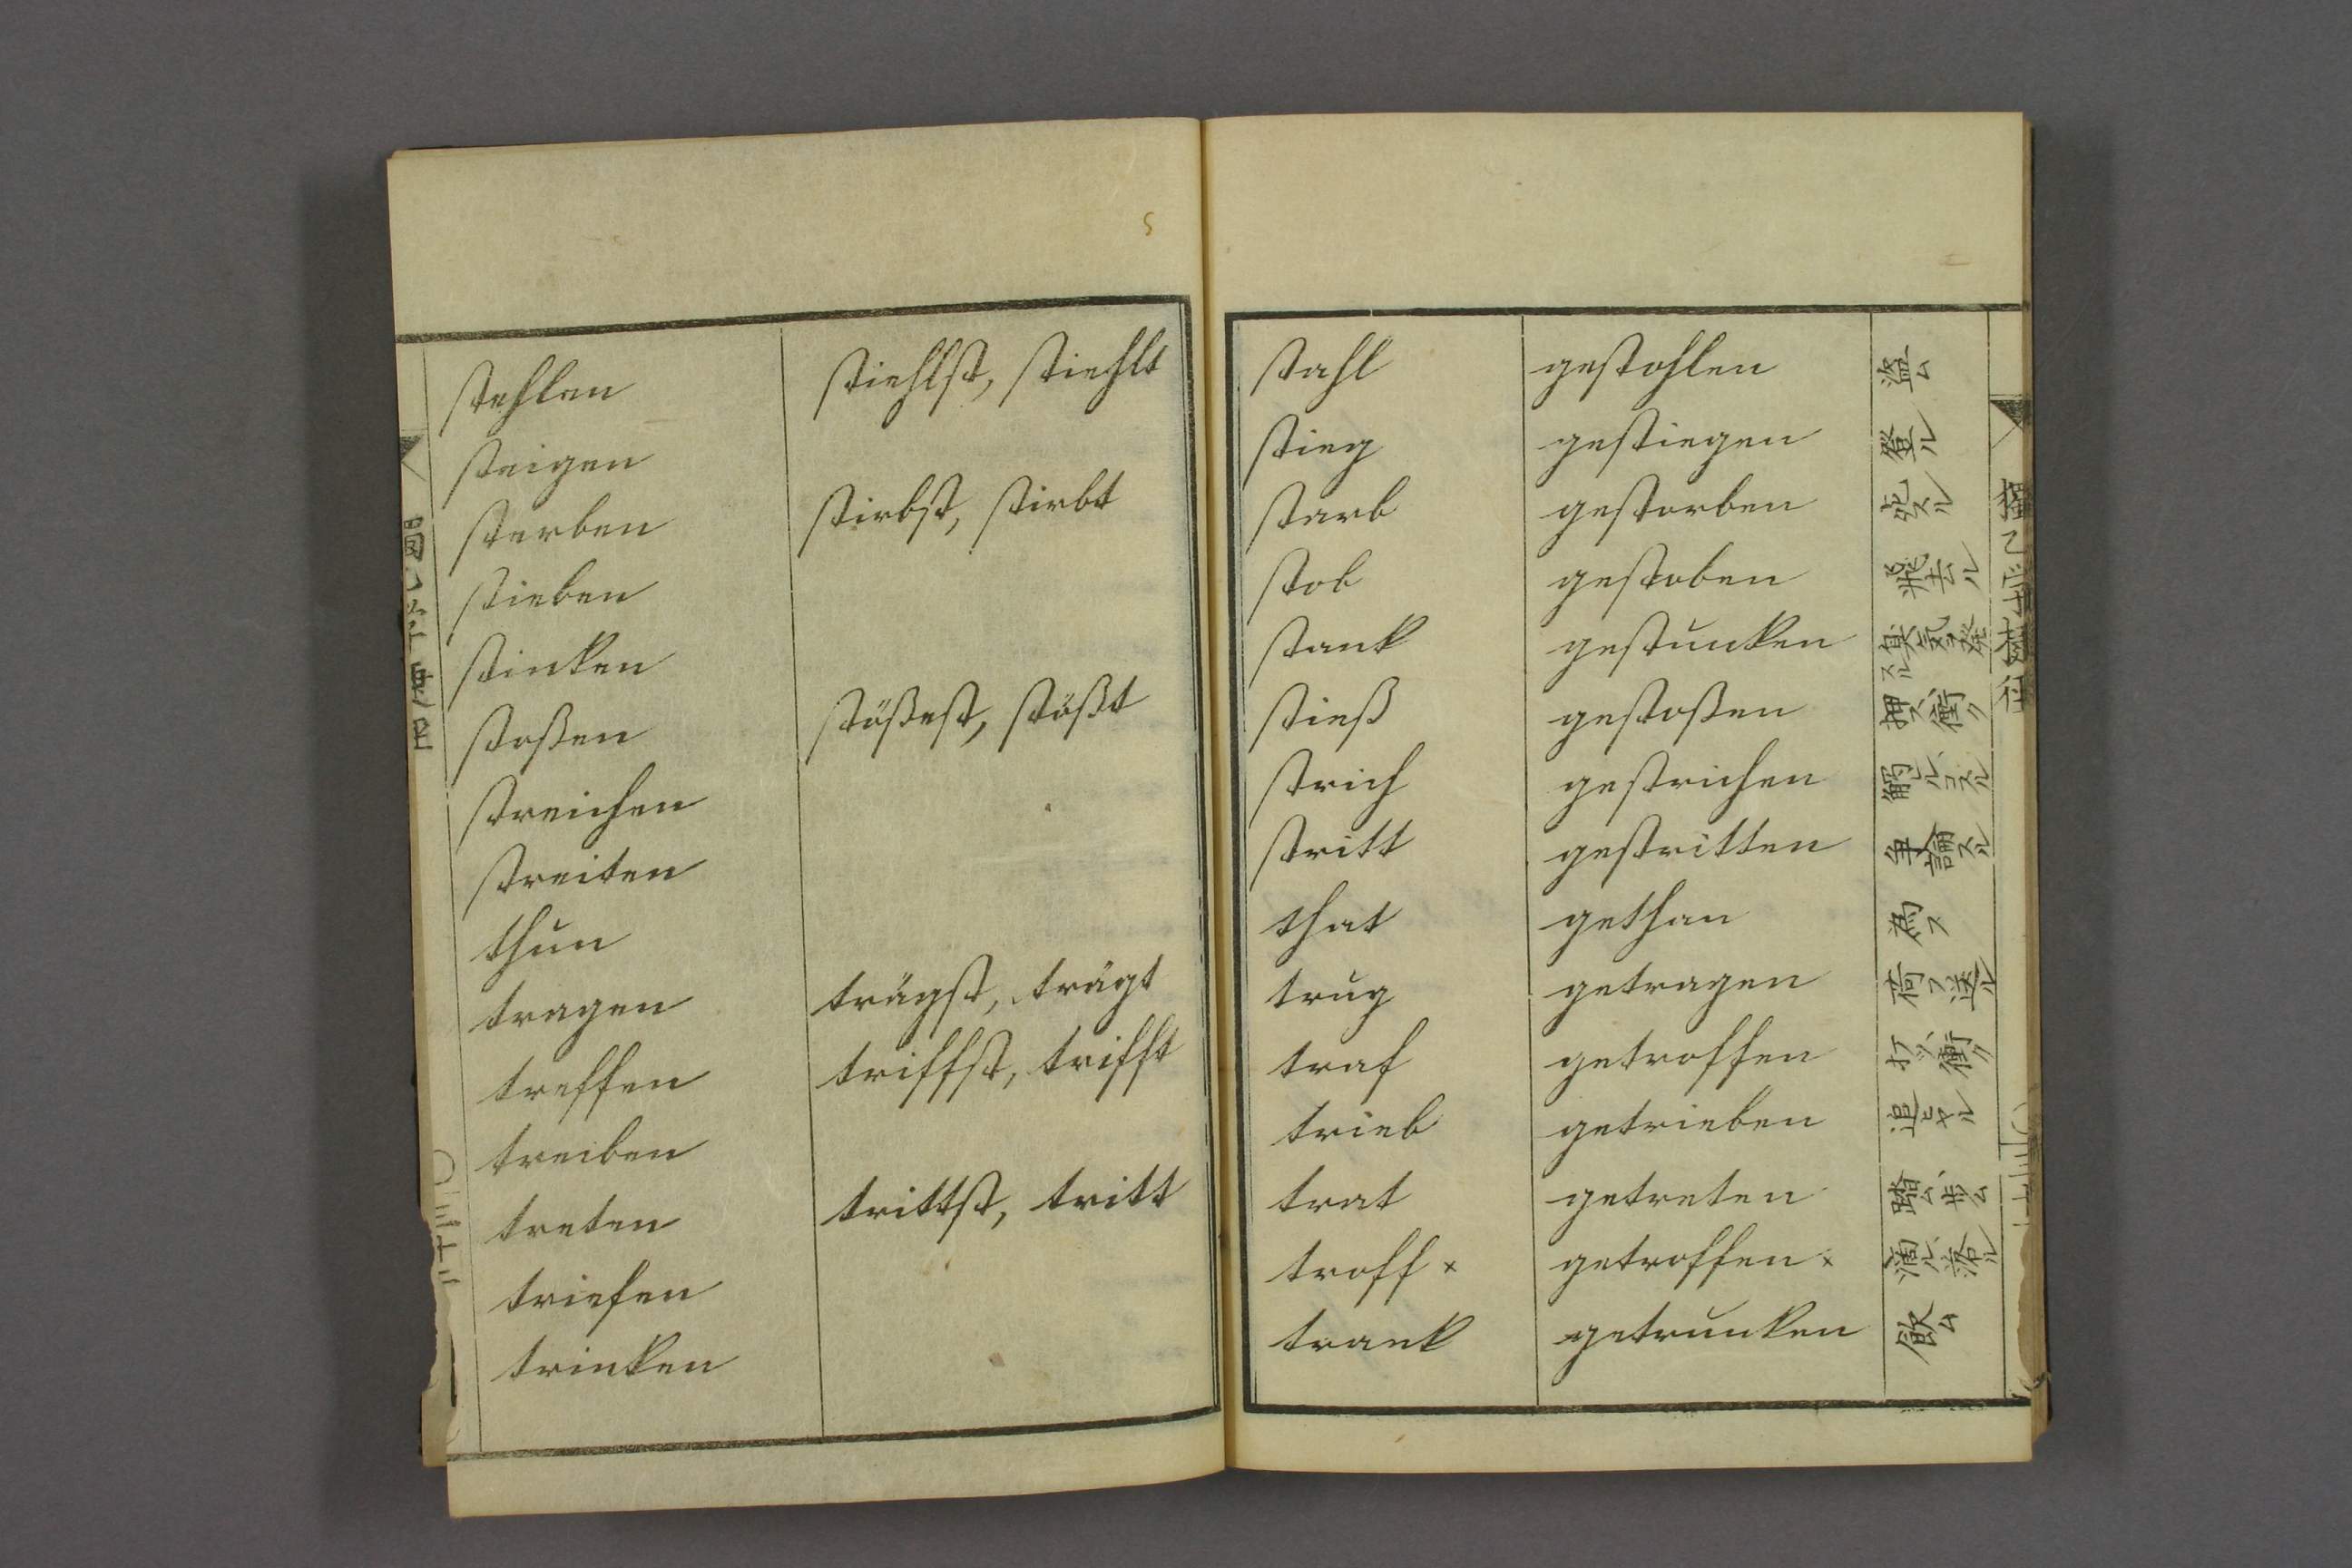 stehlen stiehlst, stiehlt stahl gestohlen 盗ム
steigen stieg gestiegen 登ル
sterben stirbst, stirbt starb gestorben 死スル
stieben stob gestoben 飛去ル
stinken stank gestunken 臭気ヲ発スル
stoßen stößest, stößt stieß gestoßen 押ス、衝ク
streichen strich gestrichen 觸ル、コスル
streiten stritt gestritten 争論スル
thun that gethan 為ス
tragen trägst, trägt trug getragen 荷フ、送ル
treffen triffst, trifft traf getroffen 打ツ、衝ク
treiben trieb getrieben 追ヒヤル
treten trittst, tritt trat getreten 踏ム、歩ム
triefen troff × getroffen × 滴ル、落ル
trinken trank getrunken 飲ム